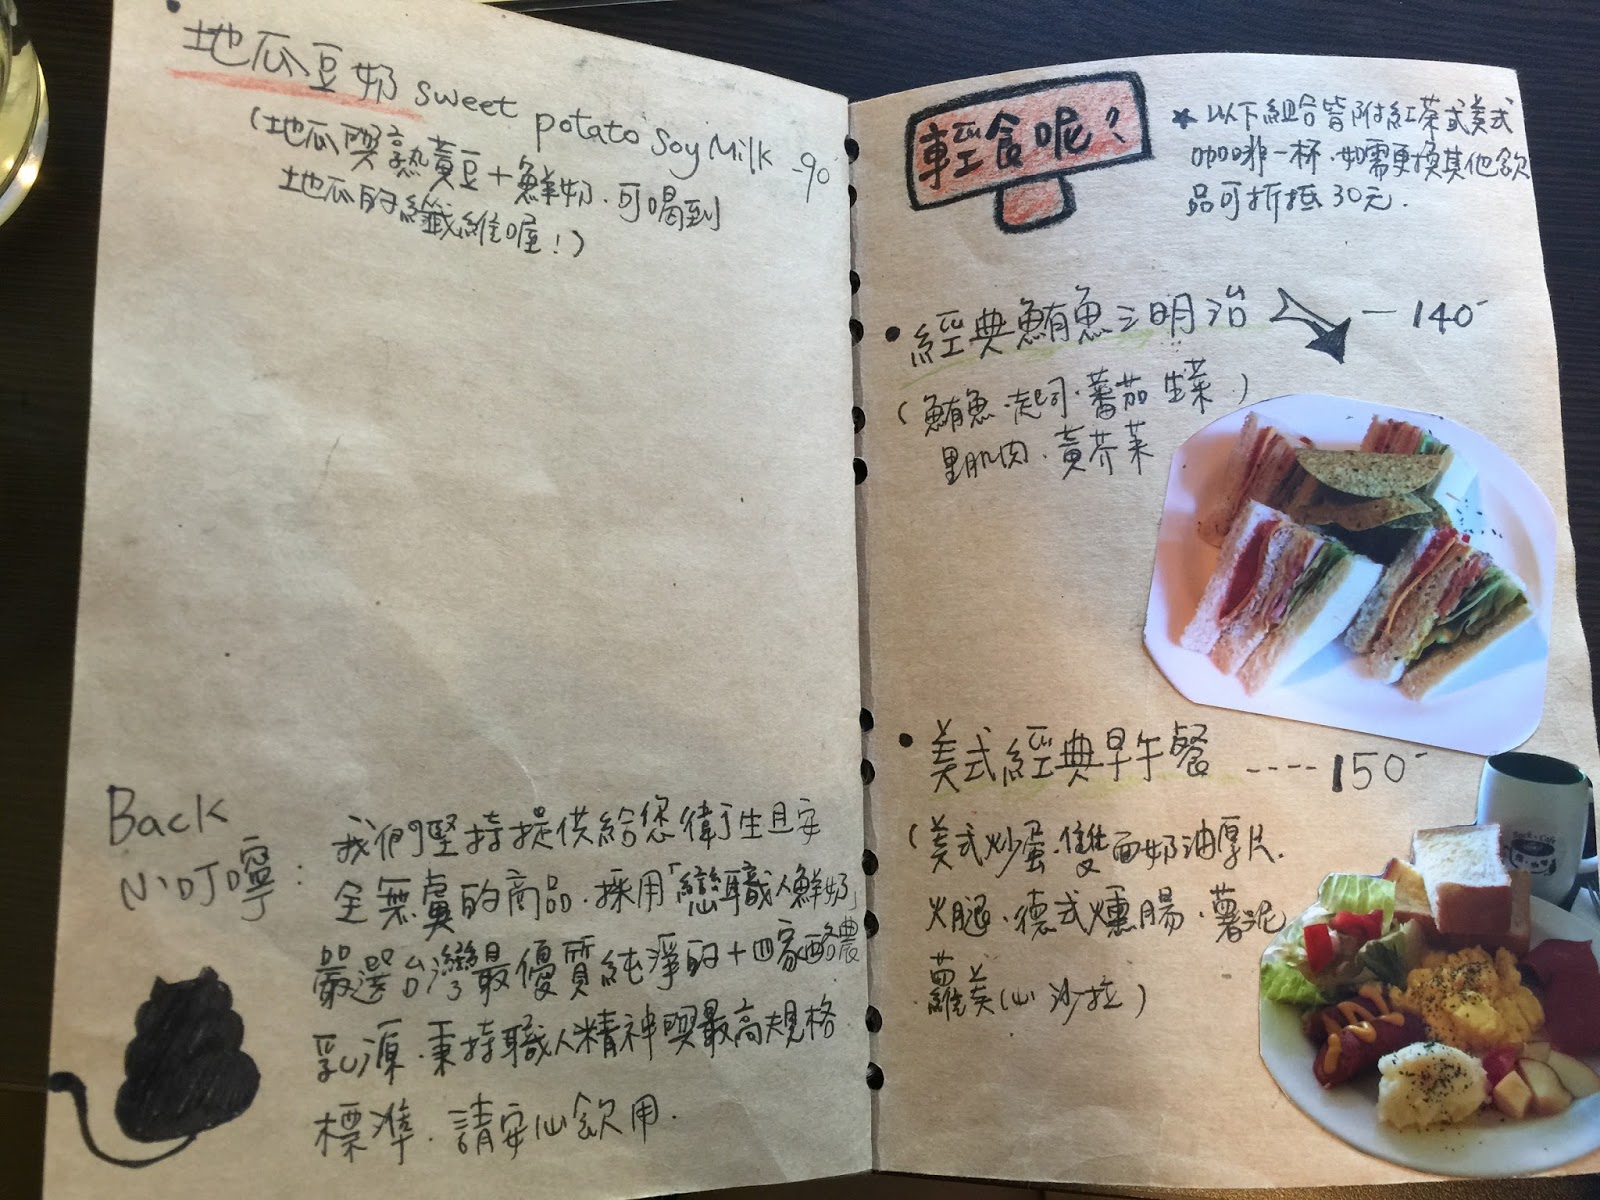 地瓜豆奶 sweet potato Soy Milk -90
(地瓜與熟黃豆+鮮奶.可喝到
地瓜的纖維喔!)
Back
小叮嚀:
我們堅持提供給您衛生且安
全無虞的商品.採用「戀職人鮮奶」
嚴選台灣最優質純淨的十四家酪農
乳源.秉持職人精神與最高規格
標準.請安心飲用.
輕食呢?
★以下組合皆附紅茶或美式
咖啡一杯.如需更換其他飲
品可折抵30元.
•經典鮪魚三明治 — 140
(鮪魚.起司.蕃茄 生菜)
里肌肉.黃芥茉
•美式經典早午餐 ----150
(美式炒蛋.雙面奶油厚片.
火腿.德式燻腸.薯泥
蘿美心沙拉)